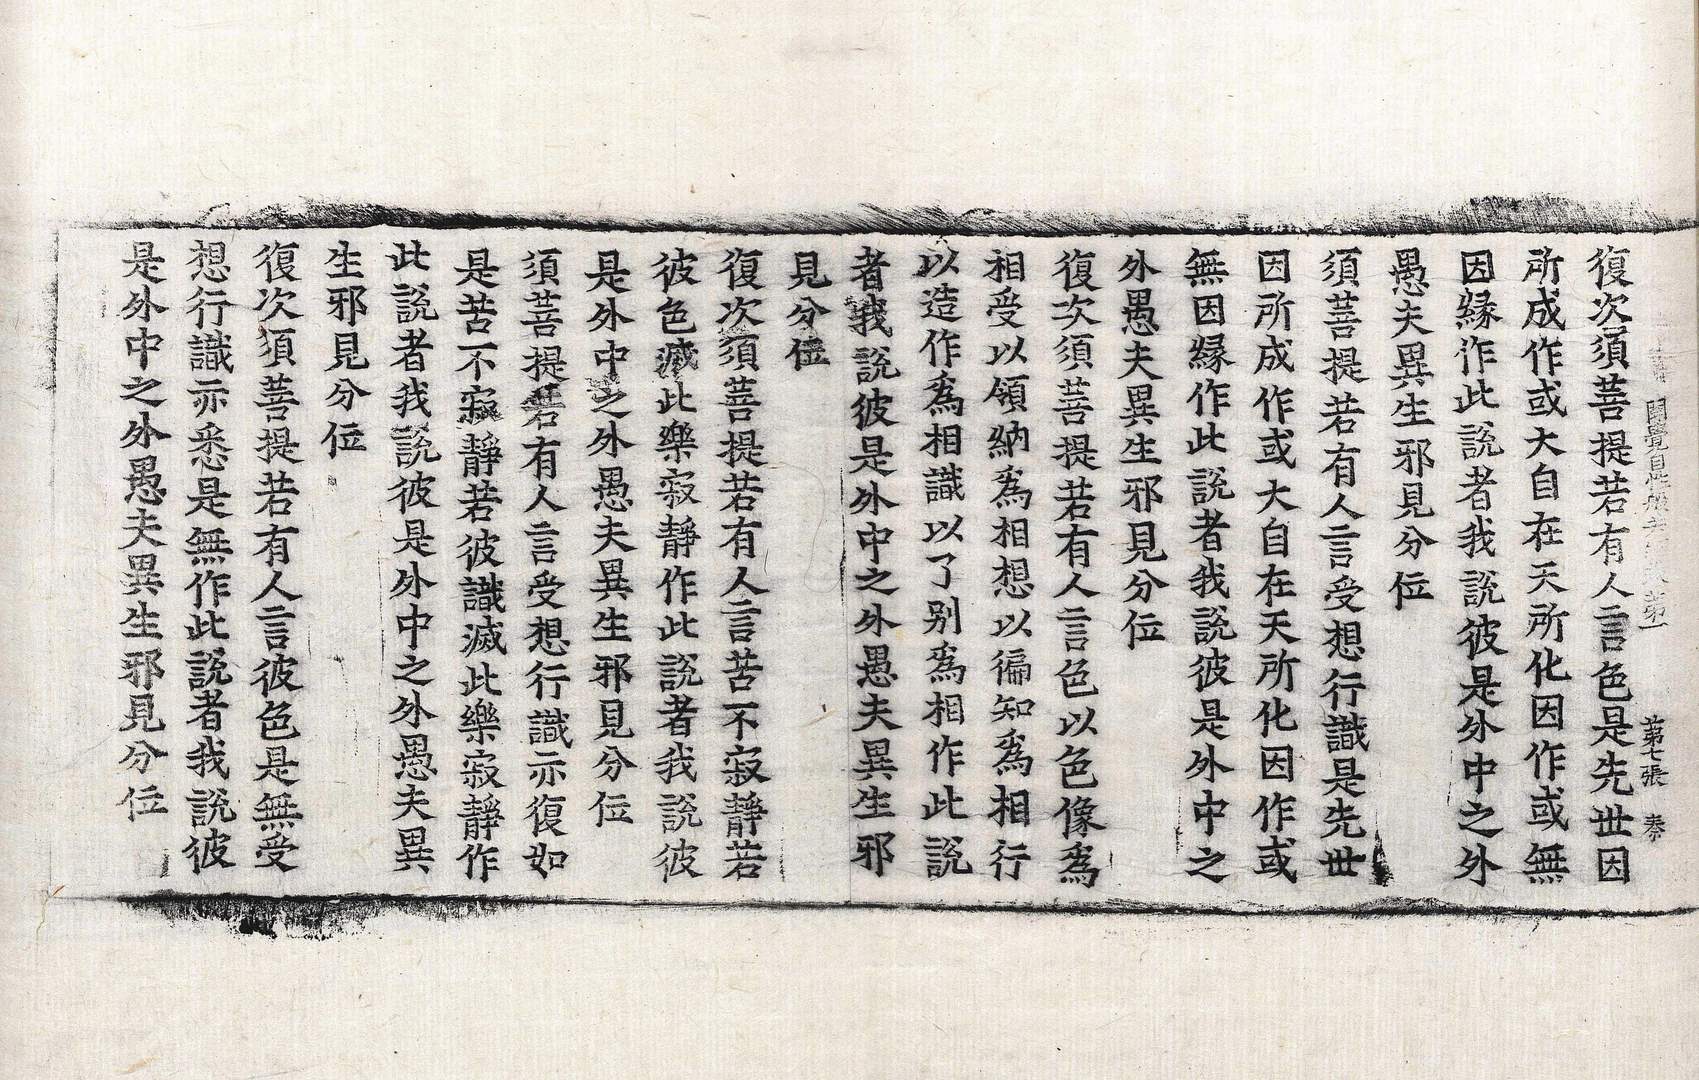 開覺自性般若 第一 第七張 泰
復次須菩提若有人言色是先世因
所成作或大自在天所化因作或無
因緣作此說者我說彼是外中之外
愚夫異生邪見分位
須菩提若有人言受想行識是先世
因所成作或大自在天所化因作或
無因緣作此說者我說彼是外中之
外愚夫異生邪見分位
復次須菩提若有人言色以色像爲
相受以領納爲相想以徧知爲相行
以造作爲相識以了别爲相作此說
者我說彼是外中之外愚夫異生邪
見分位
復次須菩提若有人言苦不寂靜若
彼色滅此樂寂靜作此說者我說彼
是外中之外愚夫異生邪見分位
須菩提若有人言受想行識亦復如
是苦不寂靜若彼識滅此樂寂靜作
此說者我說彼是外中之外愚夫異
生邪見分位
復次須菩提若有人言彼色是無受
想行識亦悉是無作此說者我說彼
是外中之外愚夫異生邪見分位